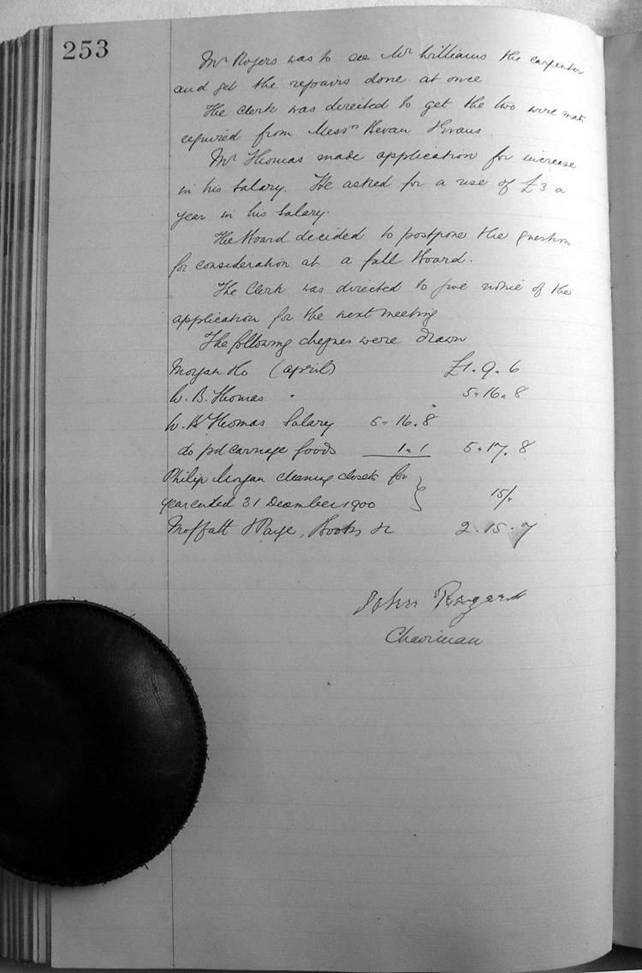 253
Mr Rogers was to see Mr Williams the carpenter
and get the repairs done at once
The Clerk was directed to get the two wire mats
required from Messrs Bevan & Evans.
Mr Thomas made application for increase
in his Salary. He asked for a rise of £3 a
year in his Salary.
The Board decided to postpone the question
for consideration at a full Board.
The Clerk was directed to give notice of the
application for the next meeting
The following cheques were drawn
Morgan (April) £1. 9. 6
W. B. Thomas " 5. 16. 8
W. B. Thomas Salary 5. 16. 8
do pd carriage goods 1. 1 5. 17. 8
Philip Morgan cleaning closets for
year ended 31 December 1900 15/.
Moffatt & Paige, Books &c 2. 15. 7
John Rogers
Chairman